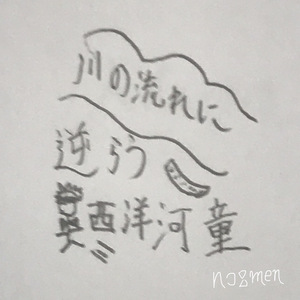 川の流れに
逆らう
西洋河童
no8men